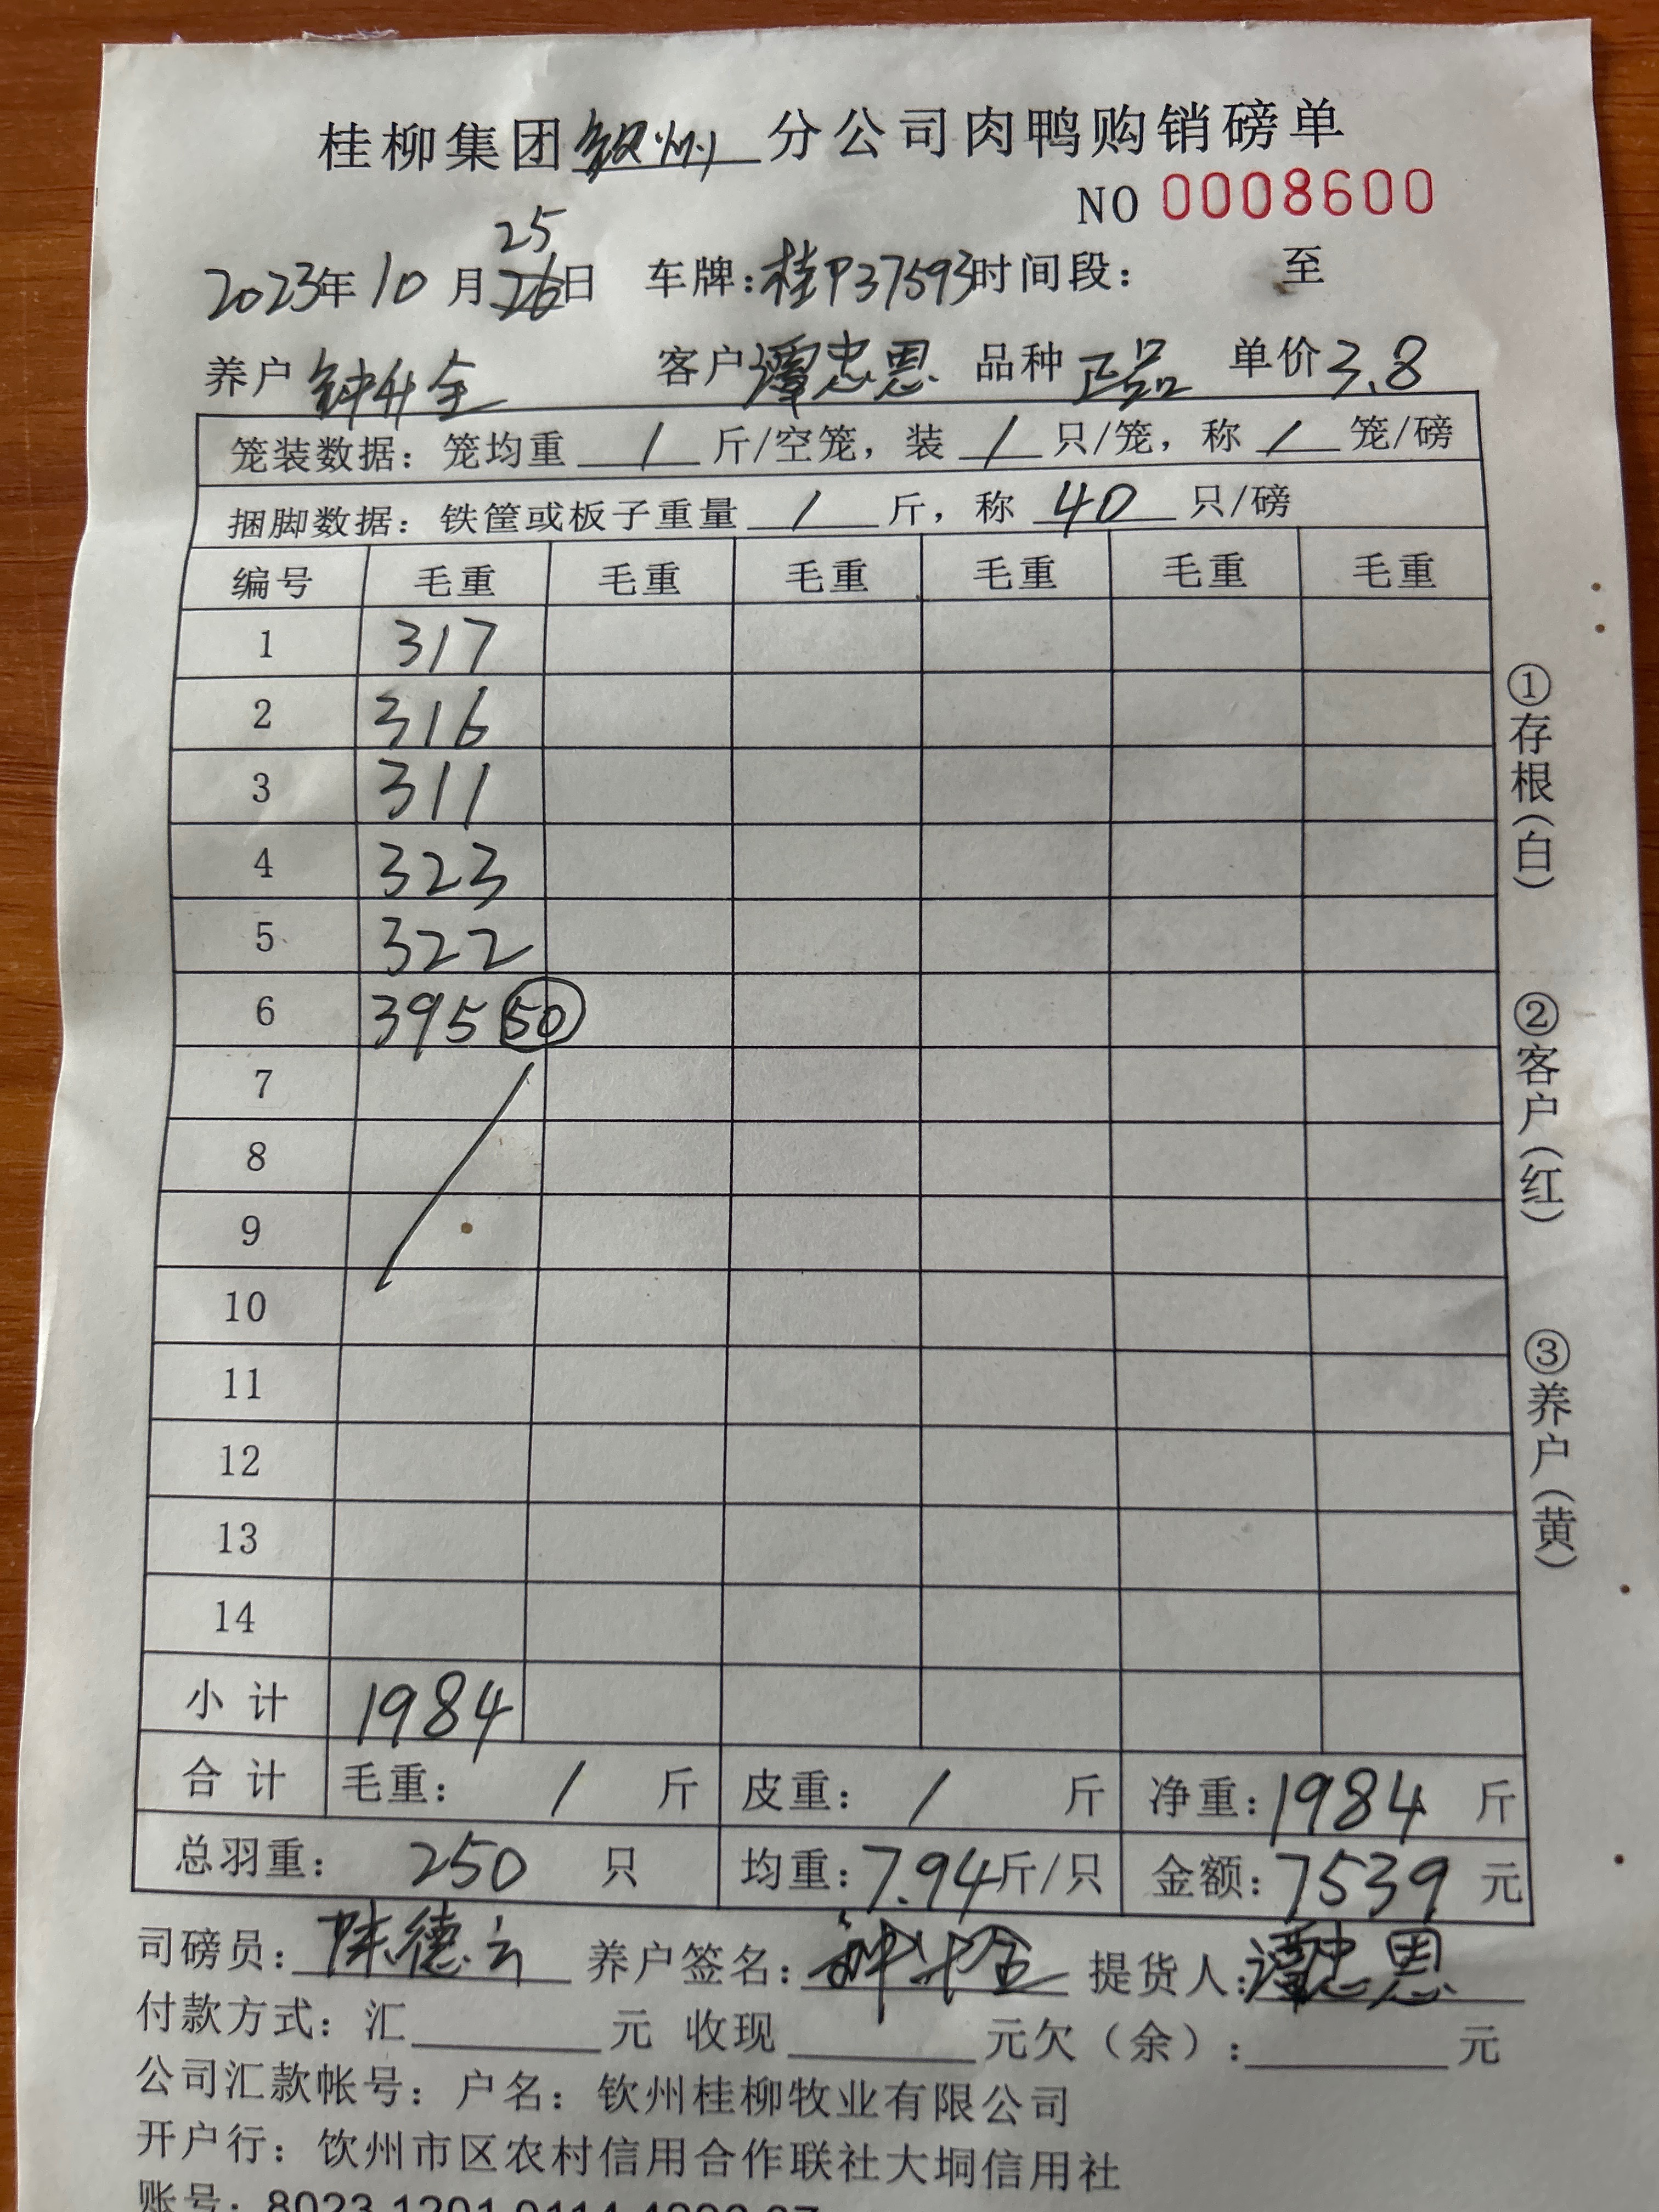 桂柳集团钦州分公司肉鸭购销磅单
NO 0008600
25
2023年10月26日 车牌:桂P37593时间段: 至
养户钟升全 客户谭忠恩 品种正品 单价3.8
笼装数据: 笼均重 / 斤/空笼, 装 / 只/笼, 称 / 笼/磅
捆脚数据: 铁筐或板子重量 / 斤, 称 40 只/磅
编号 毛重 毛重 毛重 毛重 毛重 毛重
1 317
2 316
3 311
4 323
5 322
6 395 50
7
8
9
10
11
12
13
14
小计 1984
合计 毛重: / 斤 皮重: / 斤 净重:1984 斤
总羽重: 250 只 均重:7.94斤/只 金额:7539元
司磅员: 陈德云 养户签名: 钟升全 提货人:谭忠恩
付款方式: 汇 元 收现 元欠(余): 元
公司汇款帐号: 户名: 钦州桂柳牧业有限公司
开户行: 钦州市区农村信用合作联社大垌信用社
账号: 8023 1201 0114
①存根(白)
②客户(红)
③养户(黄)